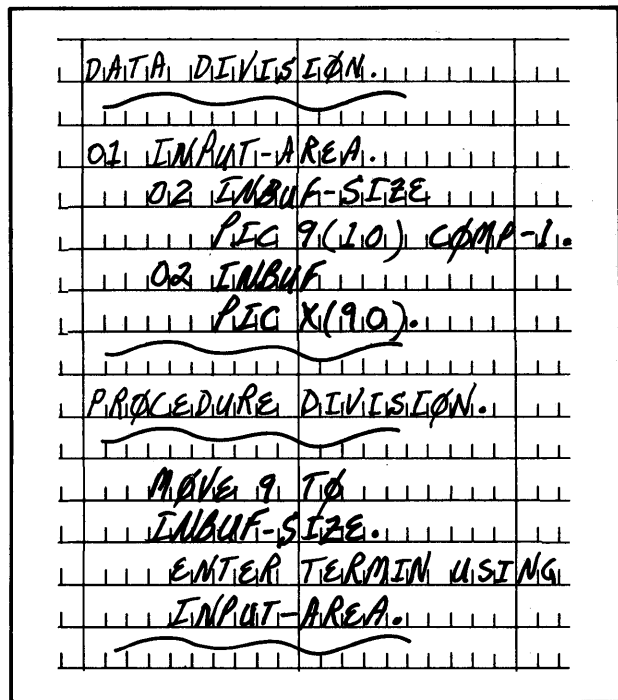 DATA DIVISIØN.
01 INPUT-AREA.
02 INBUF-SIZE
PIC 9(10) CØMP-1.
02 INBUF
PIC X(90).
PRØCEDURE DIVISIØN.
MØVE 9 TØ
INBUF-SIZE.
ENTER TERMIN USING
INPUT-AREA.